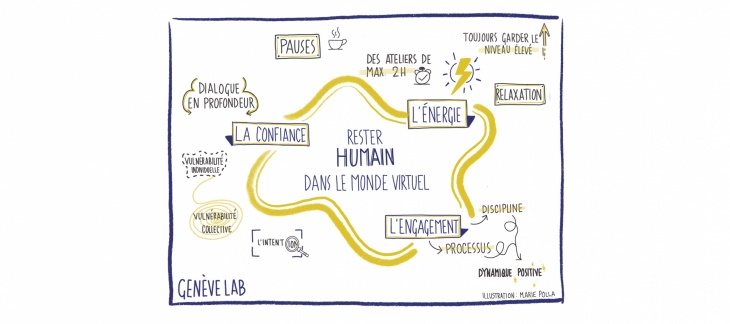 PAUSES
TOUJOURS GARDER LE
NIVEAU ÉLEVÉ
DES ATELIERS DE
MAX 2H
DIALOGUE
EN PROFONDEUR
RELAXATION
L'ÉNERGIE
LA CONFIANCE
RESTER
HUMAIN
DANS LE MONDE VIRTUEL
VULNÉRABILITÉ
INDIVIDUELLE
VULNÉRABILITÉ
COLLECTIVE
L'INTENTION
L'ENGAGEMENT
DISCIPLINE
PROCESSUS
DYNAMIQUE POSITIVE
GENÈVE LAB
ILLUSTRATION : MARIE POLLA